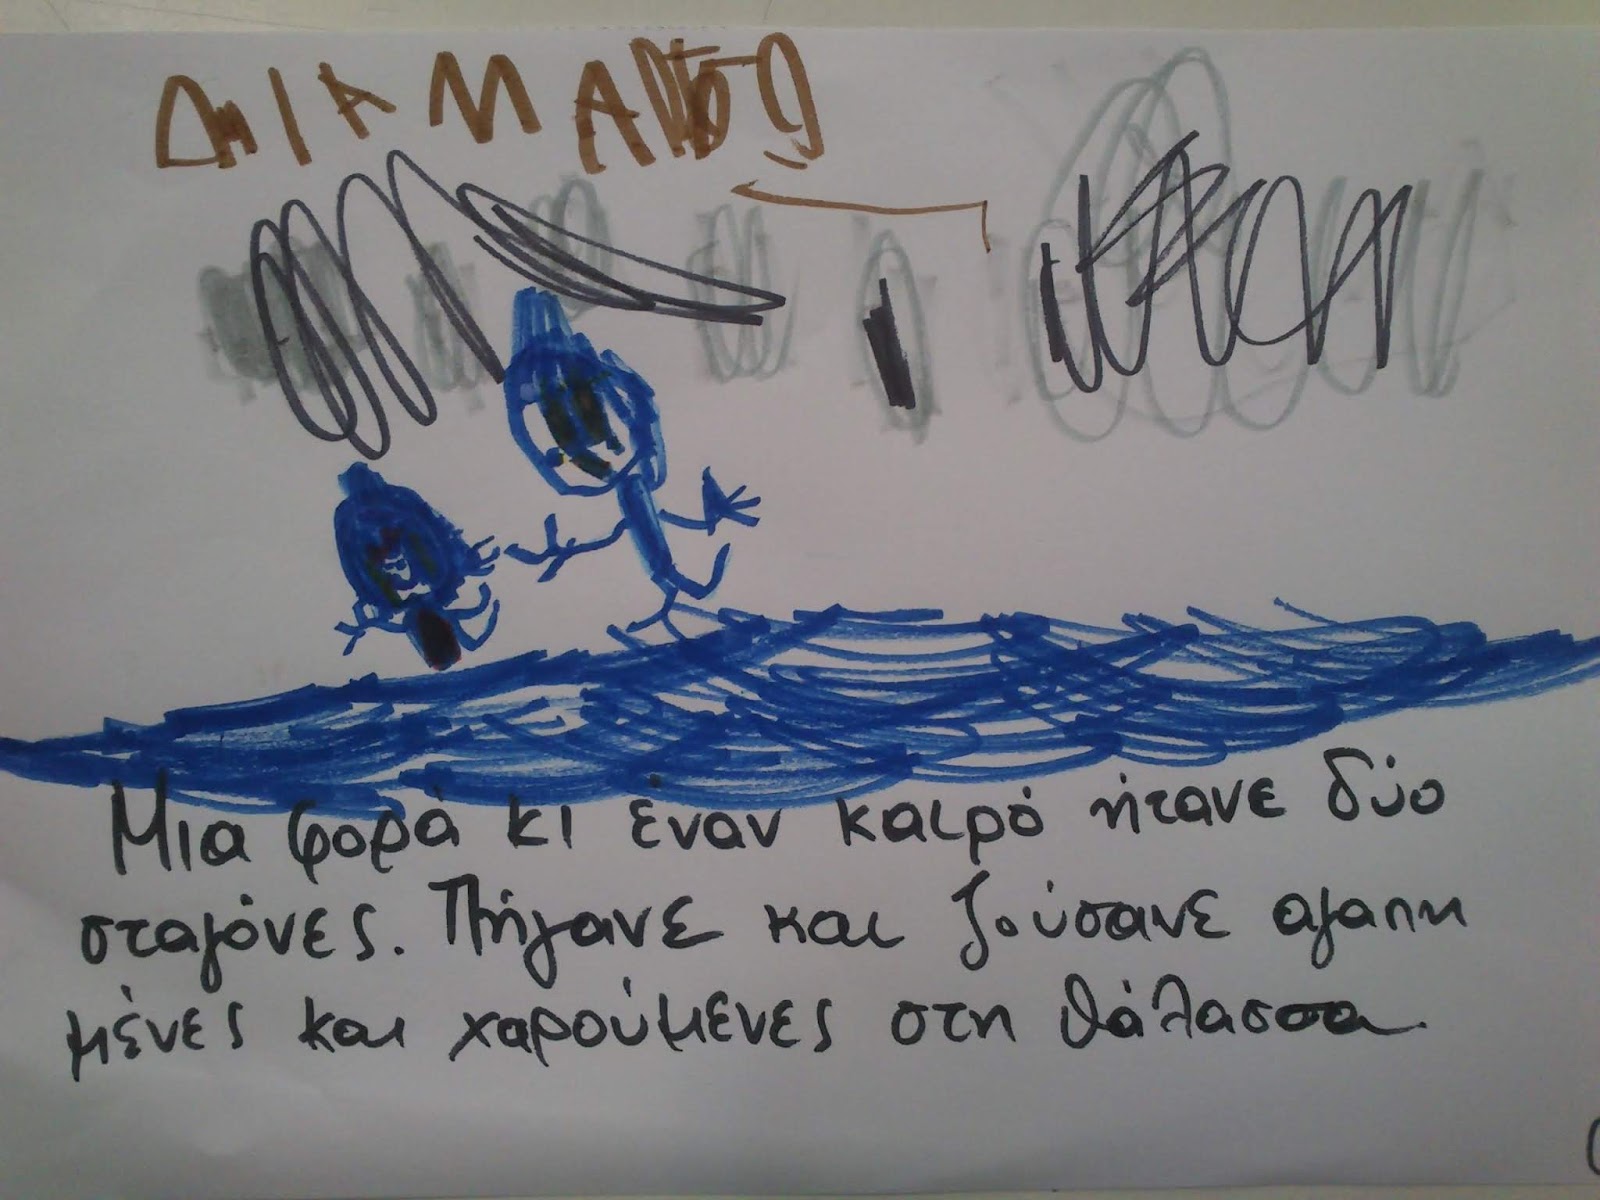 Μια φορά κι έναν καιρό ήτανε δύο
σταγόνες. Πήγανε και ζούσανε αγαπη
μένες και χαρούμενες στη θάλασσα